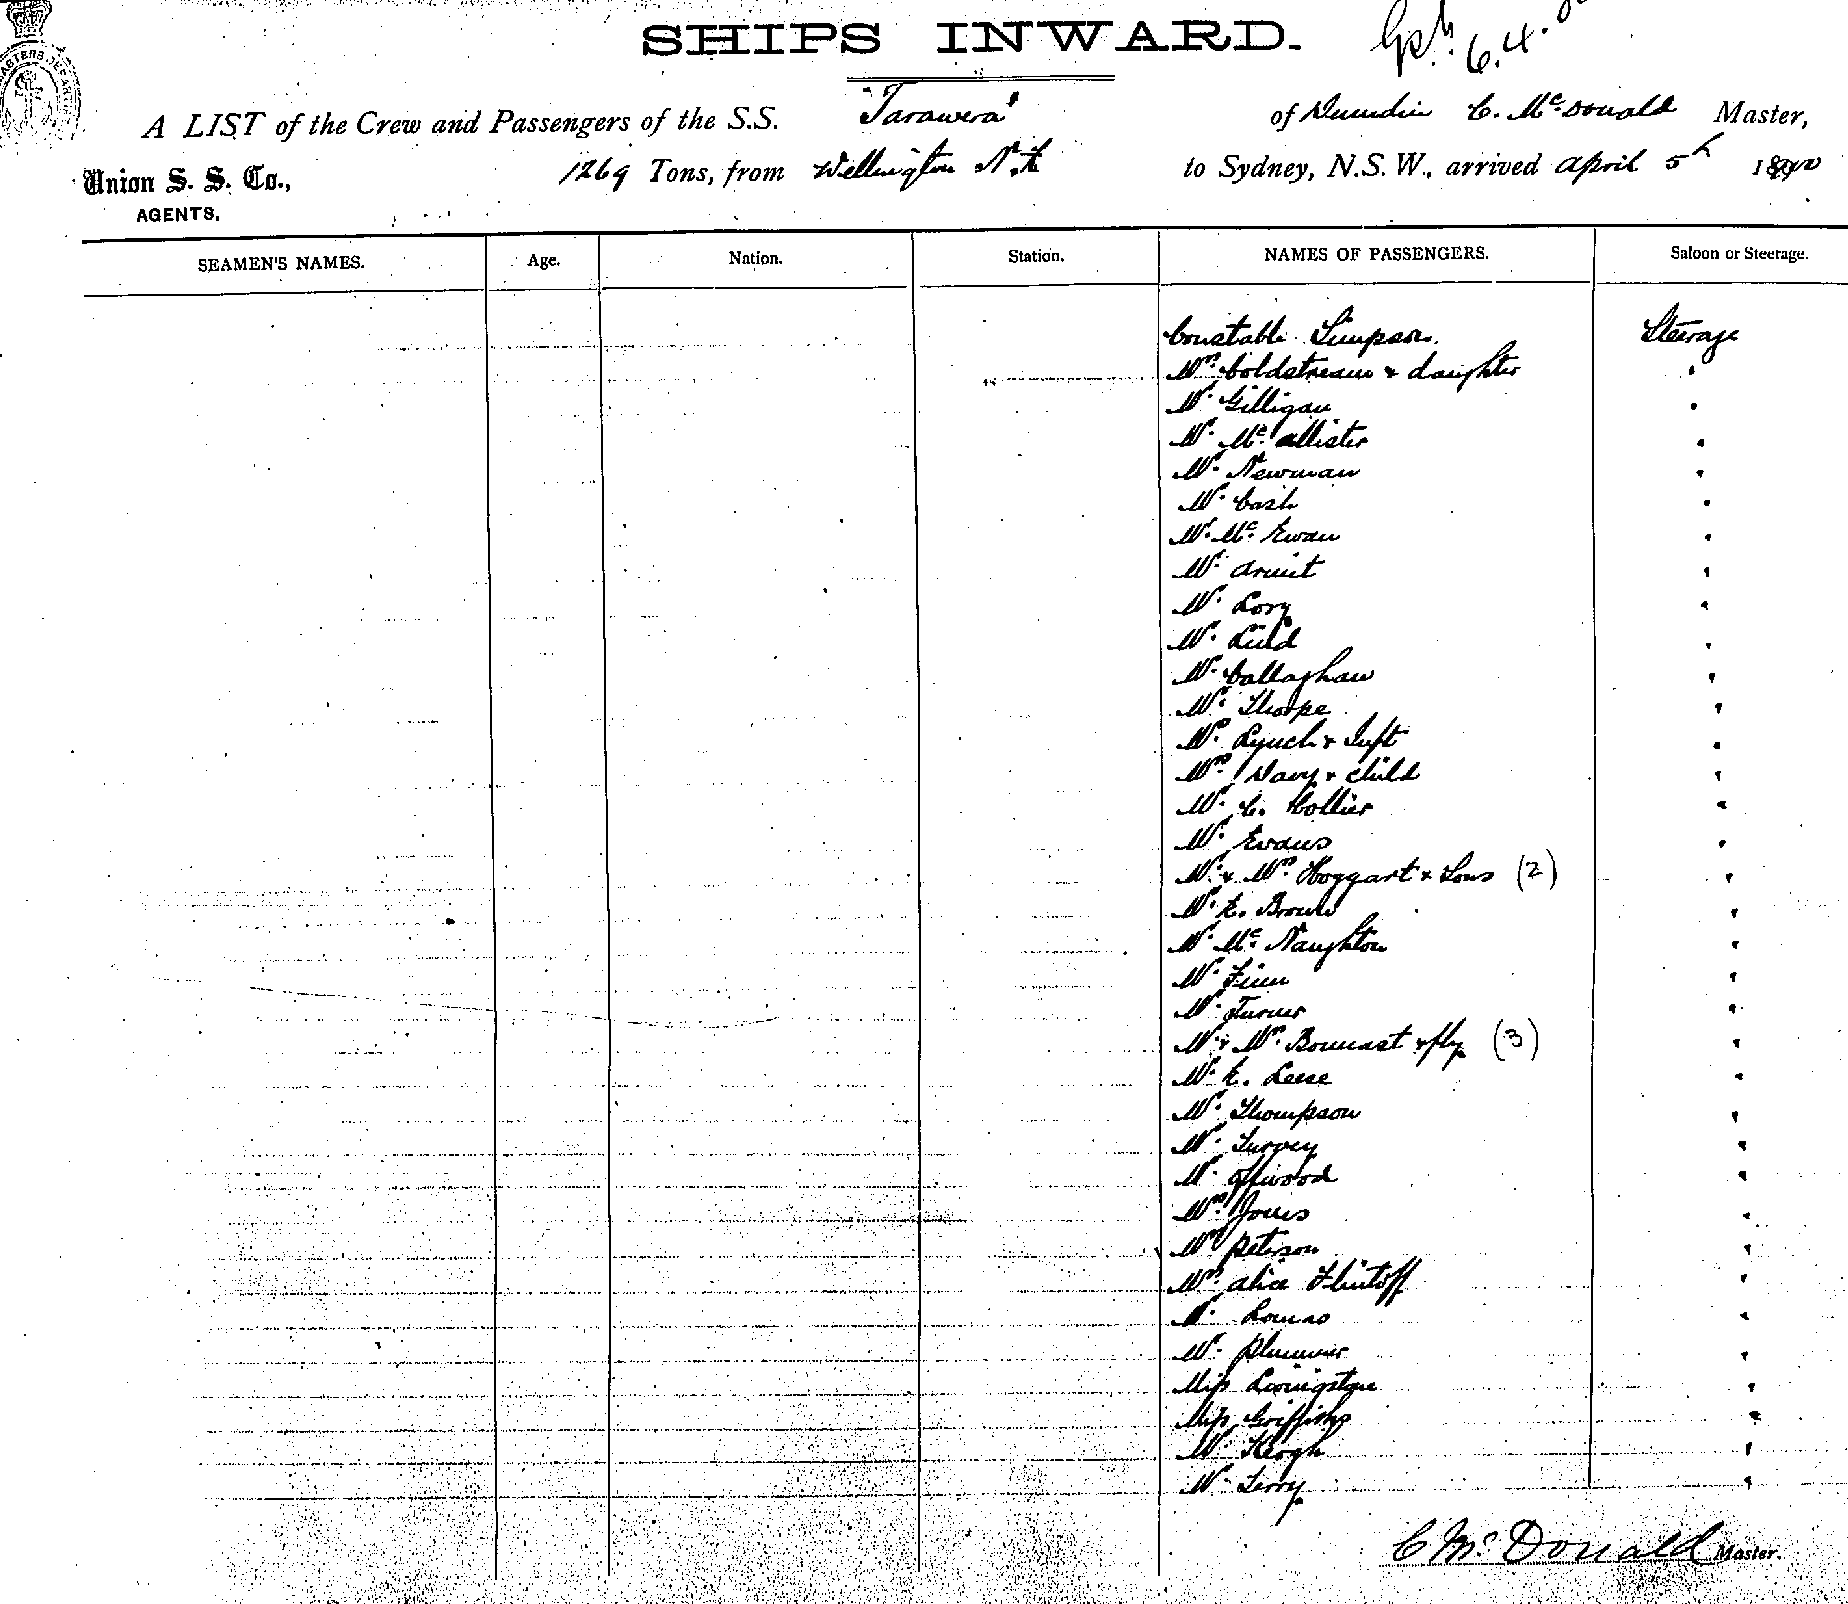 SHIPS INWARD.
6.4.
A LIST of the Crew and Passengers of the S.S. "Tarawera" of Dunedin C. McDonald Master,
Union S. S. Co., 1269 Tons, from Wellington N.Z to Sydney, N.S.W., arrived April 5th
AGENTS.
SEAMEN'S NAMES. Age. Nation. Station. NAMES OF PASSENGERS. Saloon or Steerage.
Constable Simpson. Steerage
Mrs Coldstream & daughter "
Mr Gilligan "
Mr McAllister "
Mr Newman "
Mr Cash "
Mr McEwan "
Mr Armit "
Mr Lory "
Mr "
Mr Callaghan "
Mr Thorpe "
Mrs Lynch & Inft "
Mrs Davy & child "
Mr C. Collier "
Mr Evans "
Mr & Mrs Hoggart & Sons (2) "
Mr E. Brown "
Mr McNaughton "
Mr Finn "
Mr Turner "
Mr & Mrs & fly (3) "
Mr E. Leese "
Mr Thompson "
Mr Turvey "
Mr "
Mrs Jones "
Mrs Peterson "
Mrs Alice Flintoff "
Mr "
Mr Plummer "
Miss Livingstone "
Miss Griffiths "
Mr Keogh "
Mr Terry "
C McDonald Master.